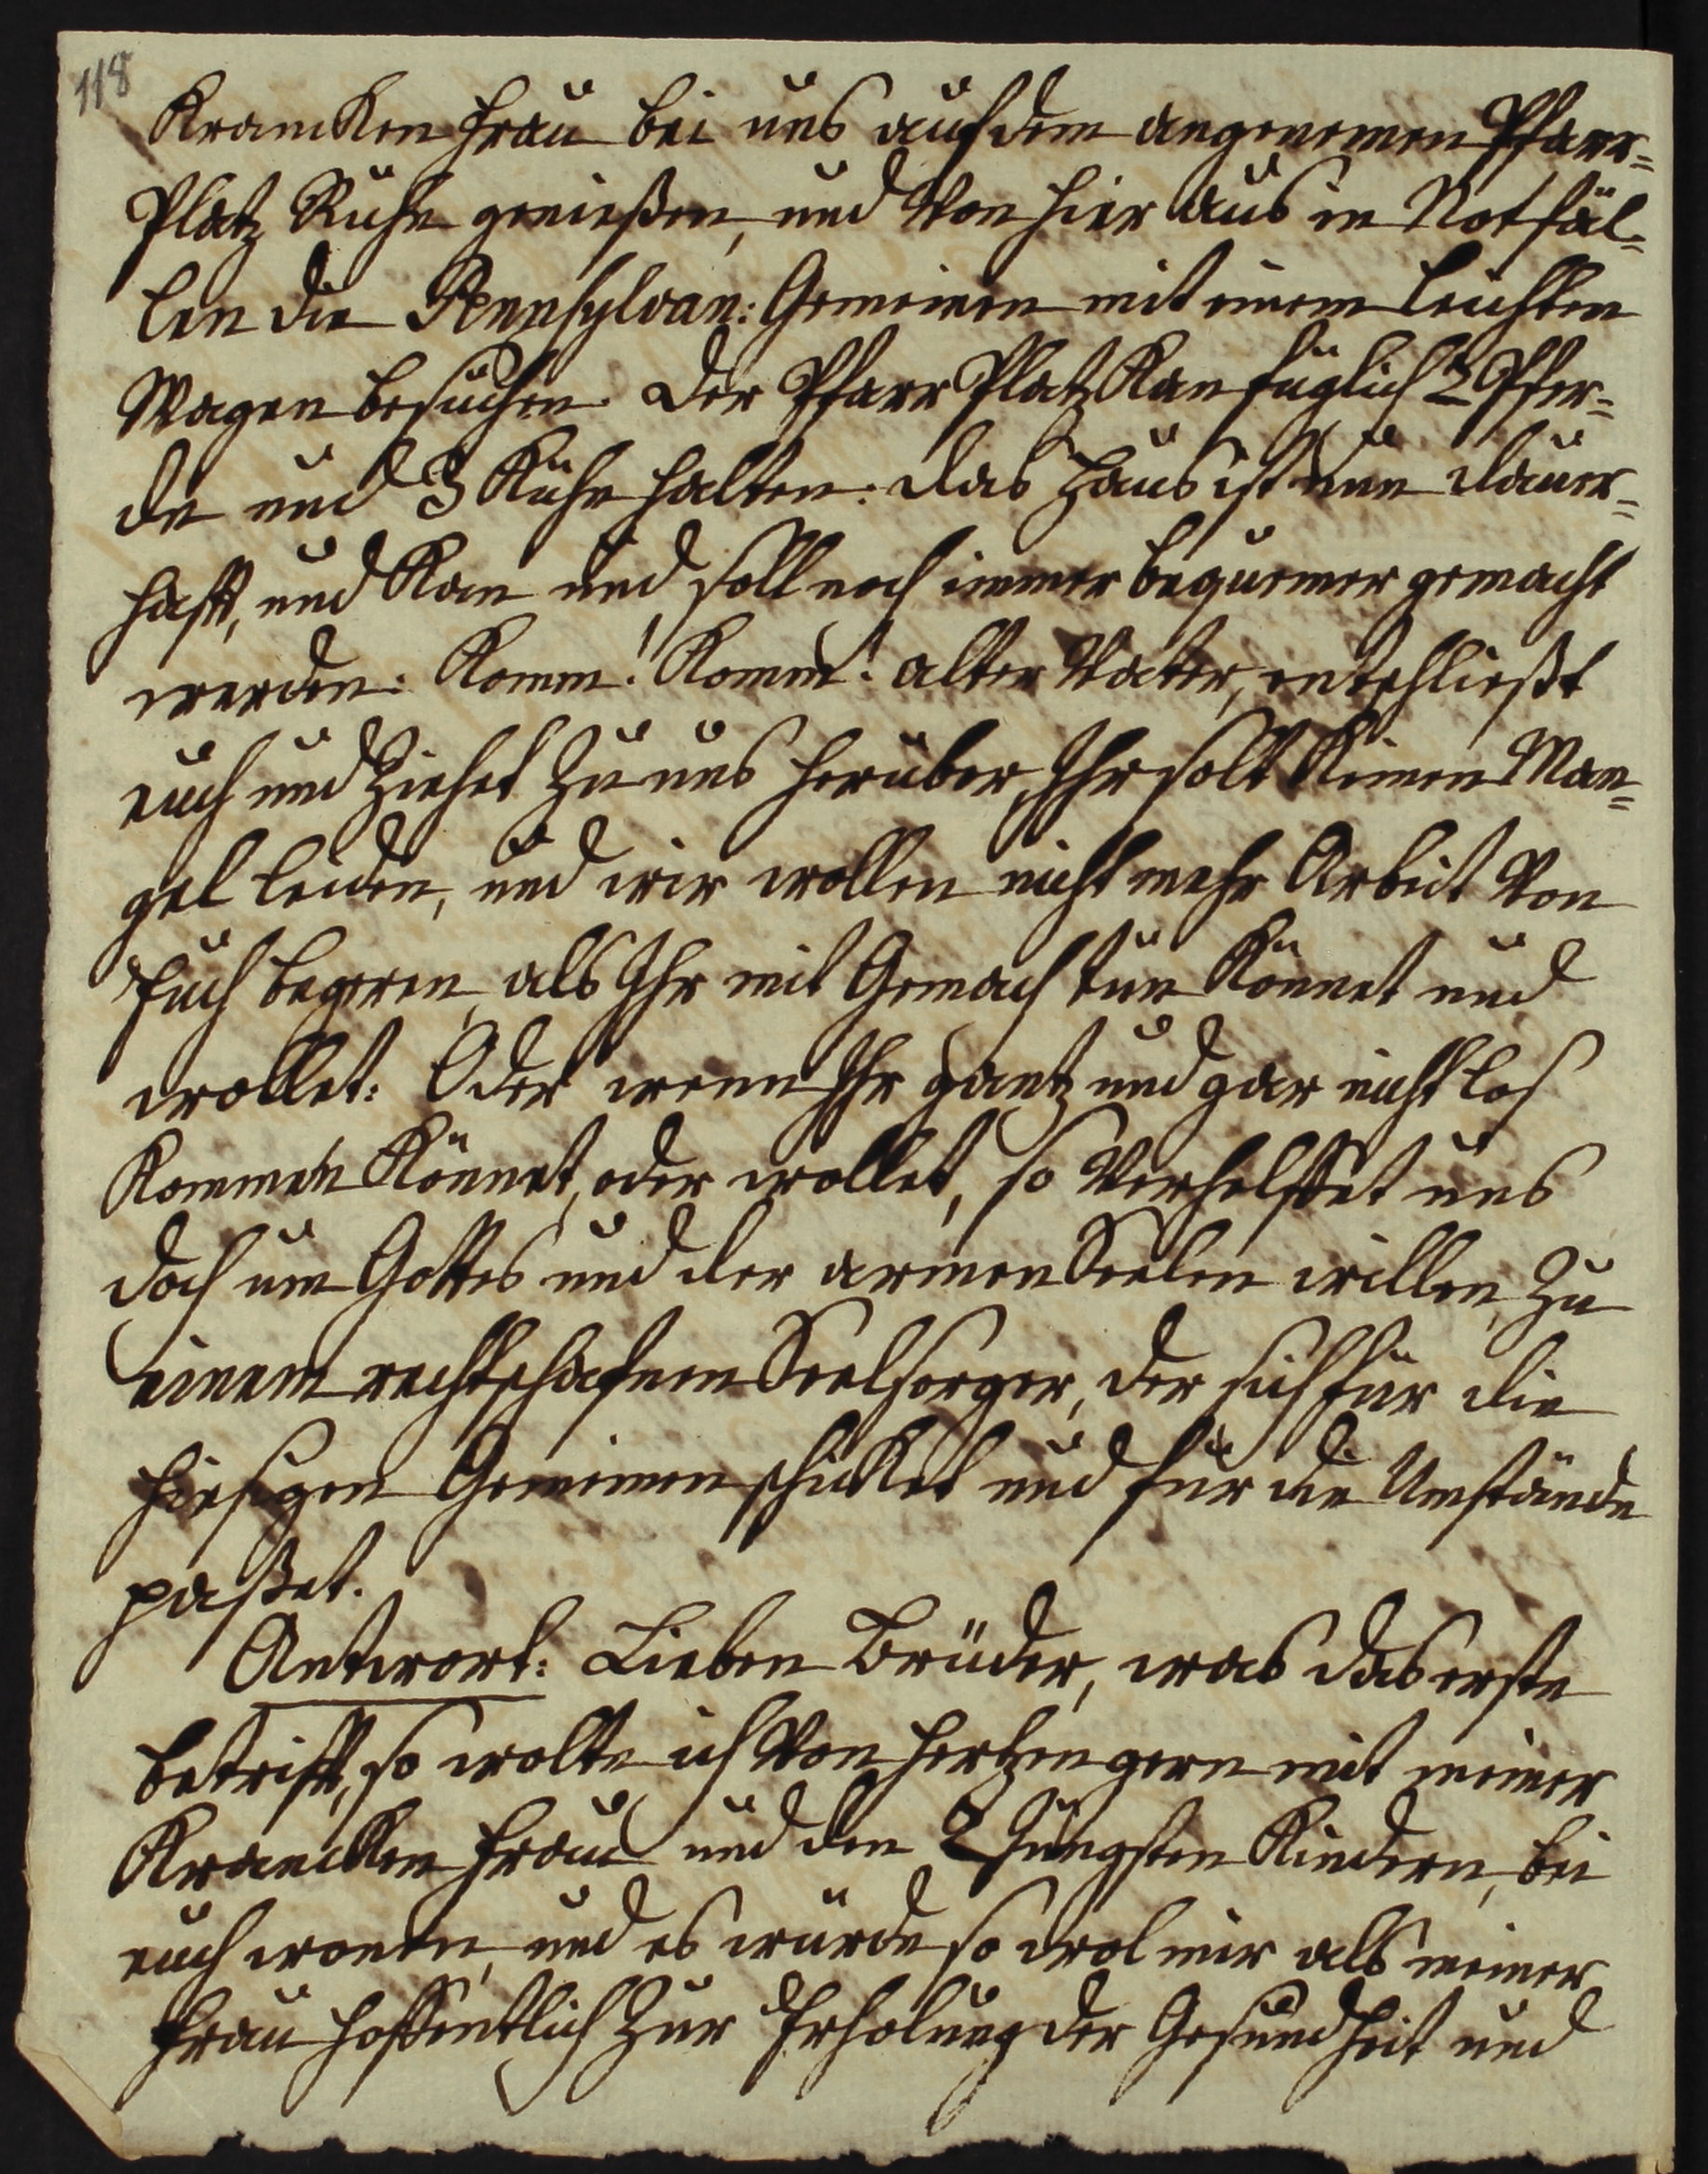 118
Krancken Frau bei uns auf dem angenemen Pfarr=
Platz Ruhe genießen, und von hier aus in Notfäl=
len die Pennsylvan: Gemeinen mit einem leichten
Wagen besuchen. Der Pfarr Platz Kan füglich 2 Pfer=
de und 3 Kühe halten: das Haus ist nun dauer=
haft, und Kan und soll noch immer bequemer gemacht
werden: Komm! Komm! alter Vater, entschließt
euch und Ziehet zu uns herüber, Ihr solt Keinen Man=
gel leiden, und wir wollen nicht mehr Arbeit von
Euch begeren, als Ihr mit Gemach tun Könnet und
wollet: Oder wenn Ihr gantz und gar nicht los
Kommen Könnet, oder wollet, so verhelffet uns
doch um Gottes und der armen Seelen willen, Zu
einem rechtschafnem Seelsorger, der sich für die
hiesigen Gemeinen schicket und für die Umstände
paßet.
Antwort: Lieben Brüder, was das erste
betrift, so wolte ich von Hertzen gern mit meiner
Krancken Frau und den 2 Jüngsten Kindern, bei
euch wonen, und es würde so wol mir als meiner
Frau hoffentlich Zur Erholung der Gesundheit und